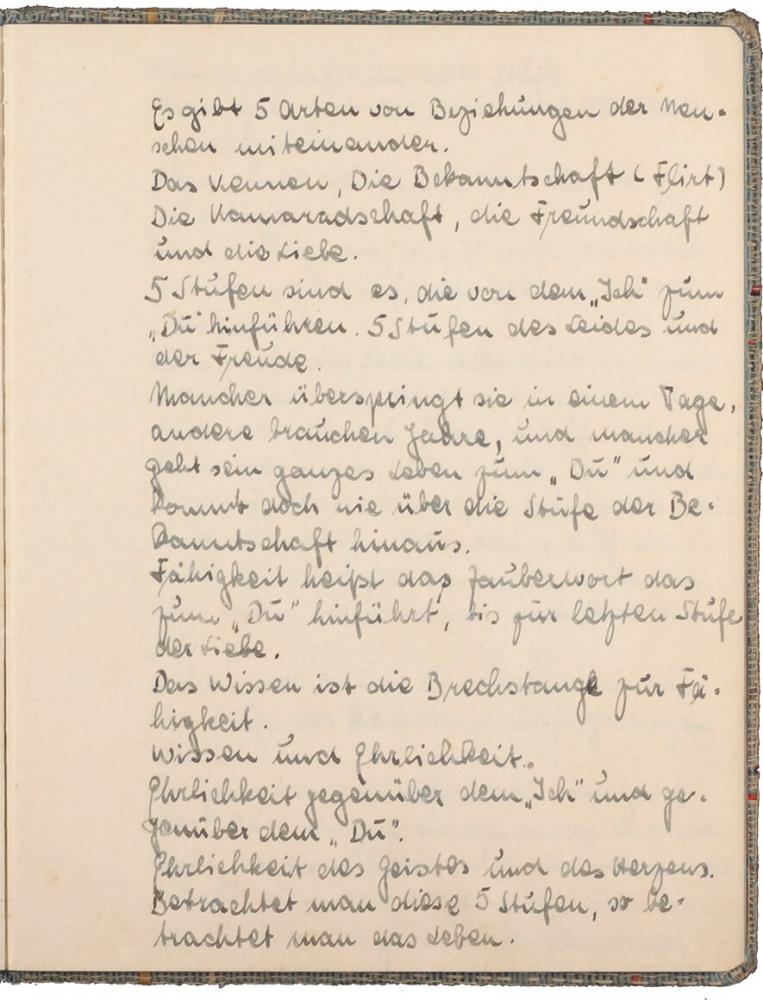 Es gibt 5 Arten von Beziehungen der Men-
schen miteinander.
Das Kennen, Die Bekanntschaft (Flirt)
Die Kamaradschaft, die Freundschaft
und die Liebe.
5 Stufen sind es, die von dem „Ich" zum
„Du" hinführen. 5 Stufen des Leides und
der Freude.
Mancher überspringt sie in einem Tage,
andere brauchen Jahre, und mancher
geht sein ganzes Leben zum „Du" und
kommt doch nie über die Stufe der Be-
kanntschaft hinaus.
Fähigkeit heißt das Zauberwort das
zum „Du" hinführt, bis zur letzten Stufe
der Liebe.
Das Wissen ist die Brechstange zur Fä-
higkeit.
Wissen und Ehrlichkeit.
Ehrlichkeit gegenüber dem „Ich" und ge-
genüber dem „Du".
Ehrlichkeit des Geistes und des Herzens.
Betrachtet man diese 5 Stufen, so be-
trachtet man das Leben.